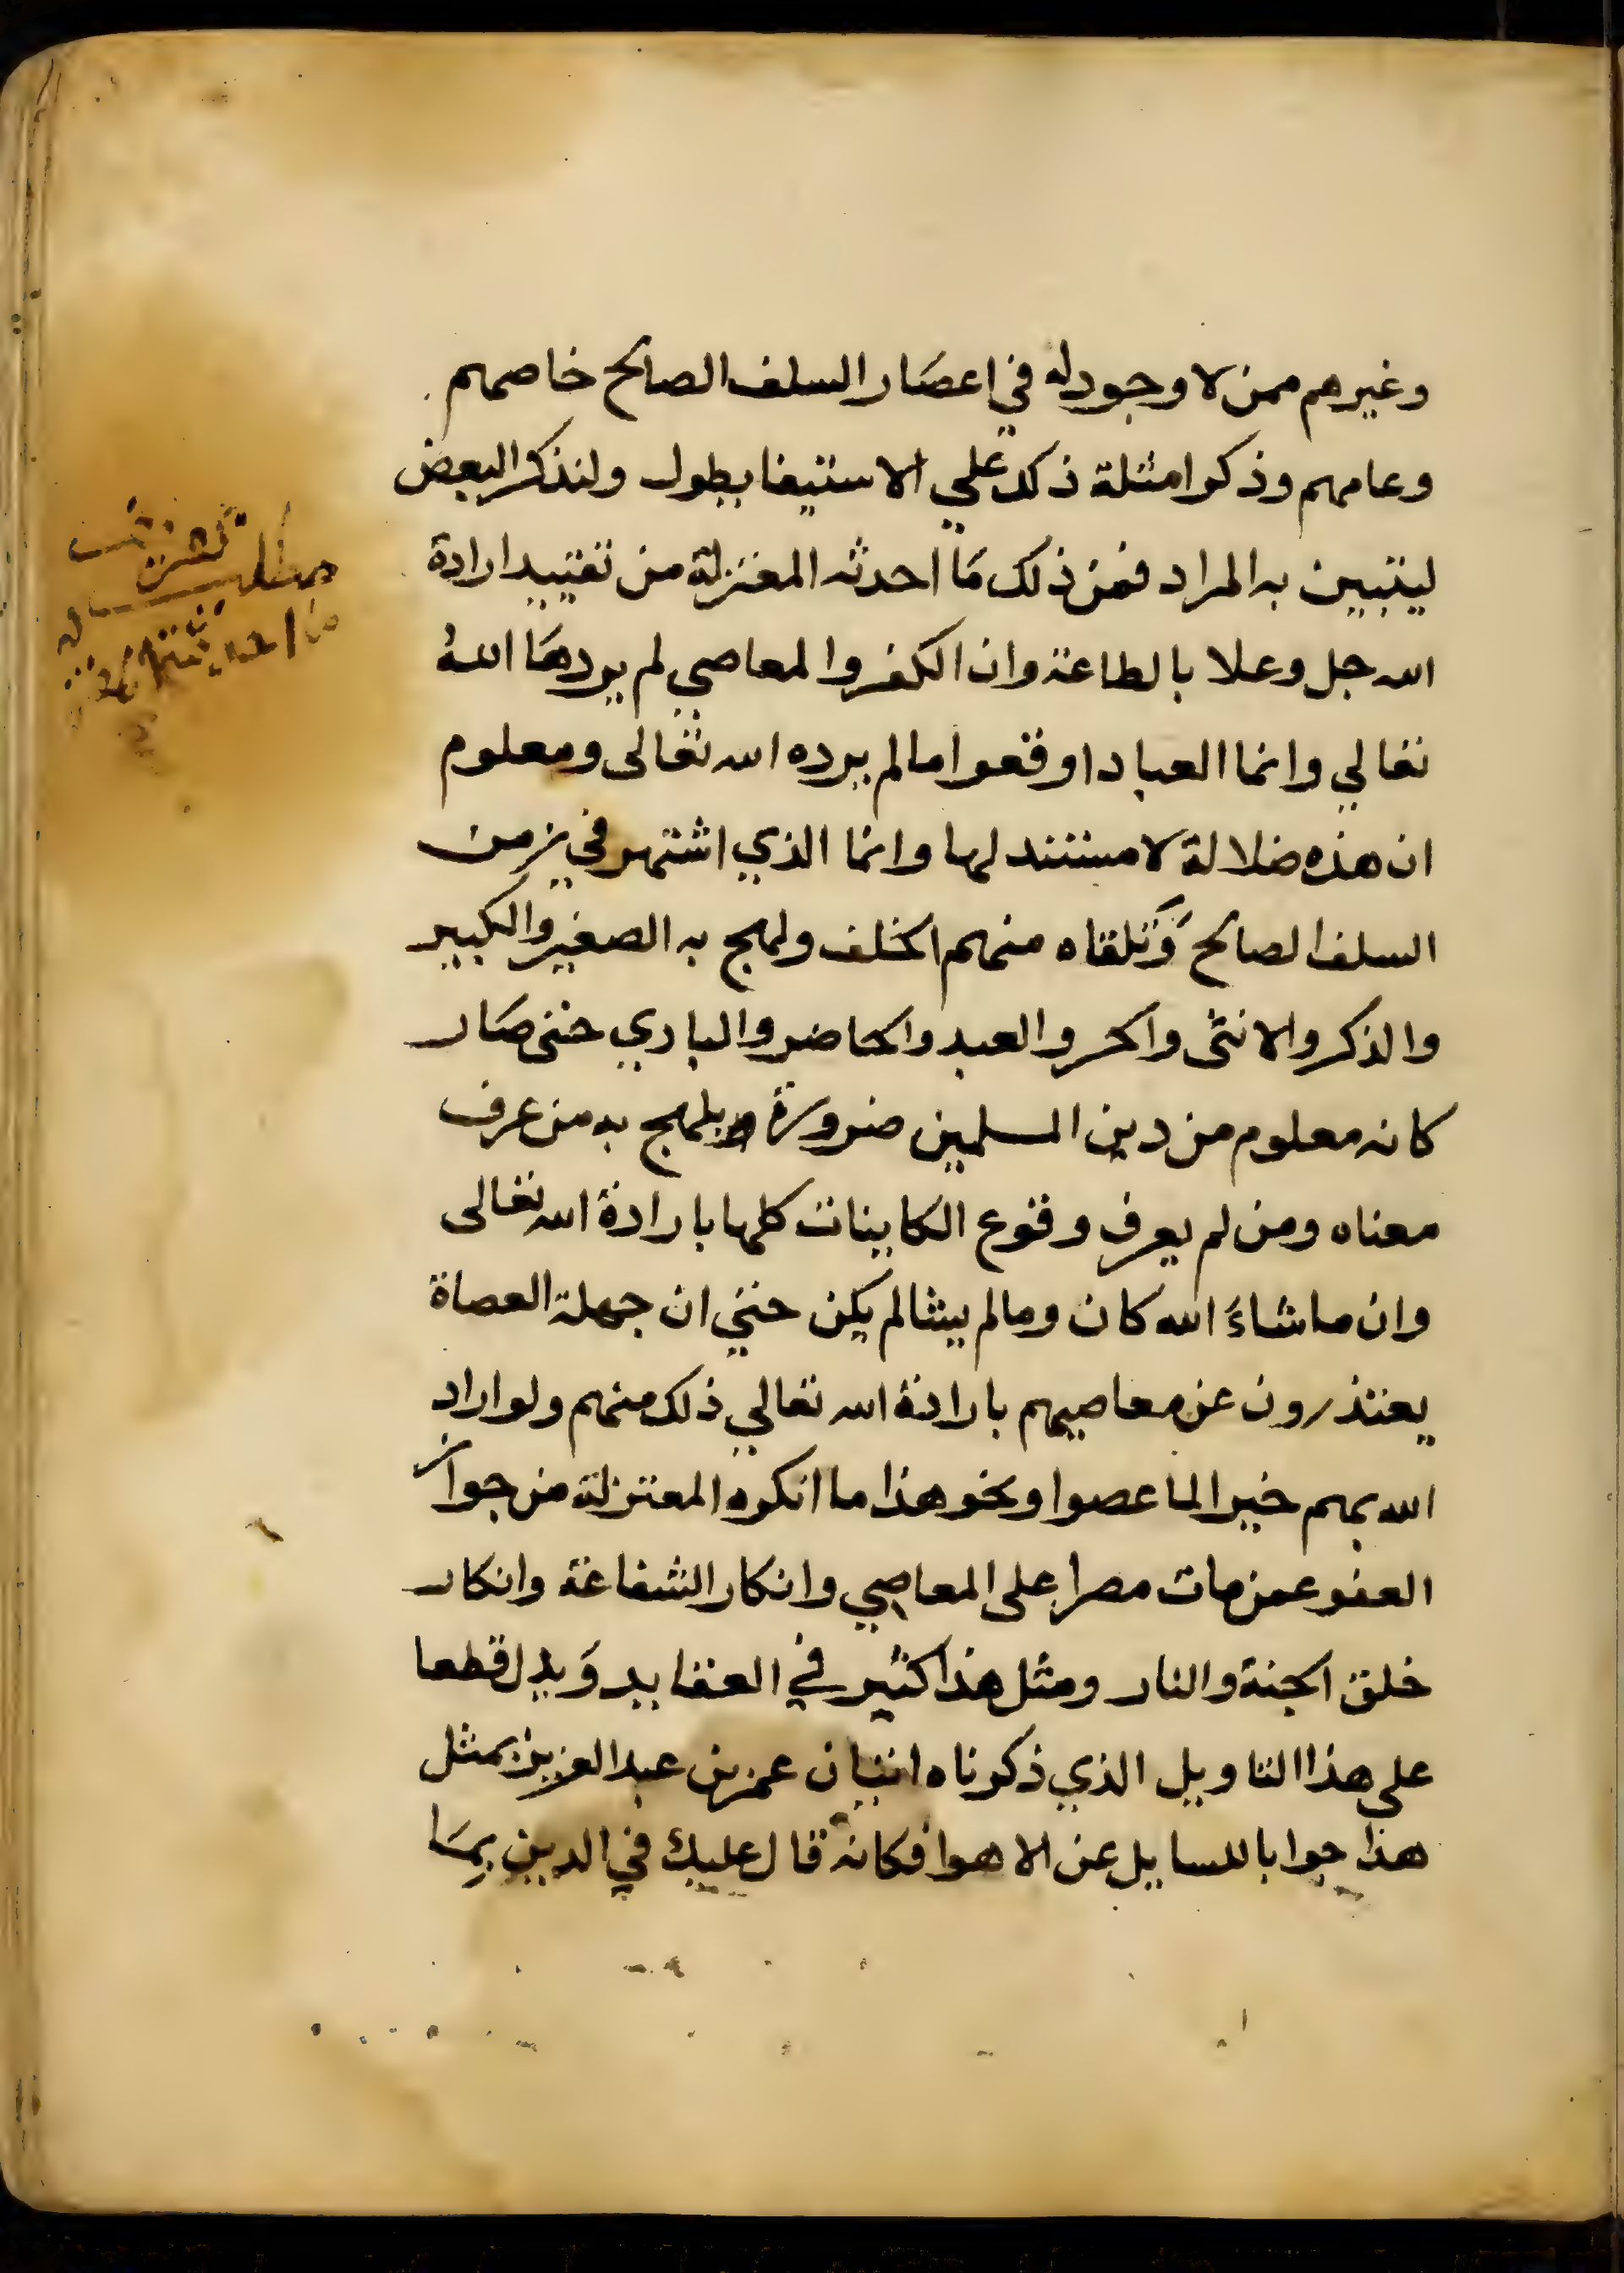 وغيرهم ممن لا وجود له في اعصار السلف الصالح خاصهم
وعامهم وذكر امثلة ذلك علي الاستيفا يطول ولنذكر البعض
ليتبين به المراد فمن ذلك مَا احدثه المعتزلة من تقييد ارادة
الله جل وعلا بالطاعة وان الكفر والمعاصي لم يردهَا اللهُ
تعالي وانما العباد اوقعوا مالم يرده الله تعَالى ومعلوم
ان هذه ضلالة لا مستند لها وانما الذي اشتهر في زمن
السلف الصالح وَتلقاه منهم الخلف ولهج به الصغير والكبير
والذكر والانثى والحر والعبد والحاضر والبادي حتى صَار
كانه معلوم من دين المسلمين ضرورة ويلهج به من عرف
معناه ومن لم يعرف وقوع الكاينات كلها بارادة الله تعَالى
وان ما شاءَ الله كان ومالم يشا لم يكن حتي ان جهلة العصاة
يعتذرون عن معاصيهم بارادة الله تعالي ذلك منهم ولو اراد
الله بهم خيرا لما عصوا ونحو هذا ما انكره المعتزلة من جواز
العفو عمن مات مصرا على المعاصي وانكار الشفاعة وانكار
خلق الجنة والنار ومثل هذا كثير في العقايد وَيدل قطعا
على هذا التاويل الذي ذكرناه اتيان عمر بن عبد العزيز بمثل
هذا جوابا للسايل عن الاهوا فكانه قال عليك في الدين بمَا
مطلب
ما احدثته المعتزلة